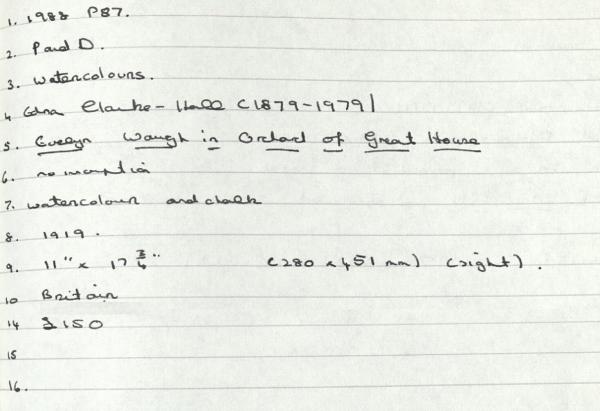 1. 1988 P87.
2. P and D.
3. watercolours.
4. Edna Clarke-Hall (1879-1979)
5. Evelyn Waugh in Orchard of Great House
6. no inscription
7. watercolour and chalk
8. 1919.
9. 11" x 17 3/4" (280 x 451 mm) (sight).
10 Britain
14 £150
15
16.